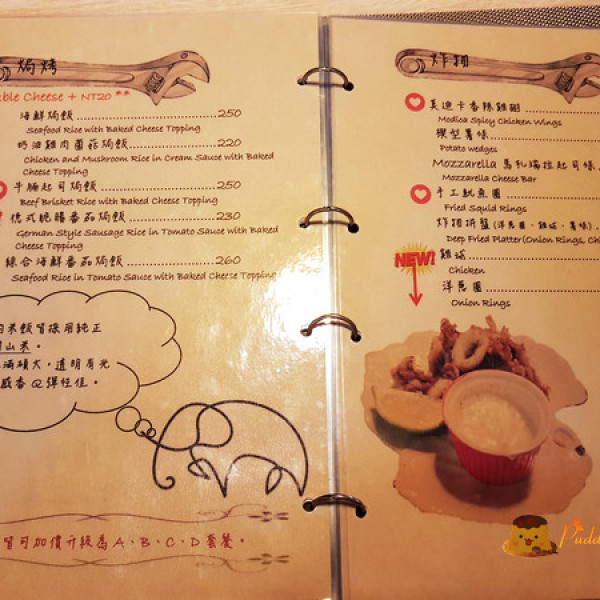 焗烤
ble Cheese + NT20 **
海鮮焗飯 250
Seafood Rice with Baked Cheese Topping
奶油雞肉菌菇焗飯 220
Chicken and Mushroom Rice in Cream Sauce with Baked
Cheese Topping
牛腩起司焗飯 250
Beef Brisket Rice with Baked Cheese Topping
德式脆腸番茄焗飯 230
German Style Sausage Rice in Tomato Sauce with Baked
Cheese Topping
綜合海鮮番茄焗飯 260
Seafood Rice in Tomato Sauce with Baked Cheese Topping
米飯皆採用純正
山米。
滿碩大,透明有光
感香Q彈性佳。
皆可加價升級為A、B、C、D套餐。
炸物
美迪卡香辣雞翅
Modica Spicy Chicken Wings
楔型薯條
Potato wedges
Mozzarella 馬札瑞拉起司條
Mozzarella Cheese Bar
手工魷魚圈
Fried Squid Rings
炸物拼盤(洋蔥圈、雞塊、薯條)
Deep Fried Platter(Onion Rings, Chi
NEW!
雞塊
Chicken
洋蔥圈
Onion Rings
Pudd